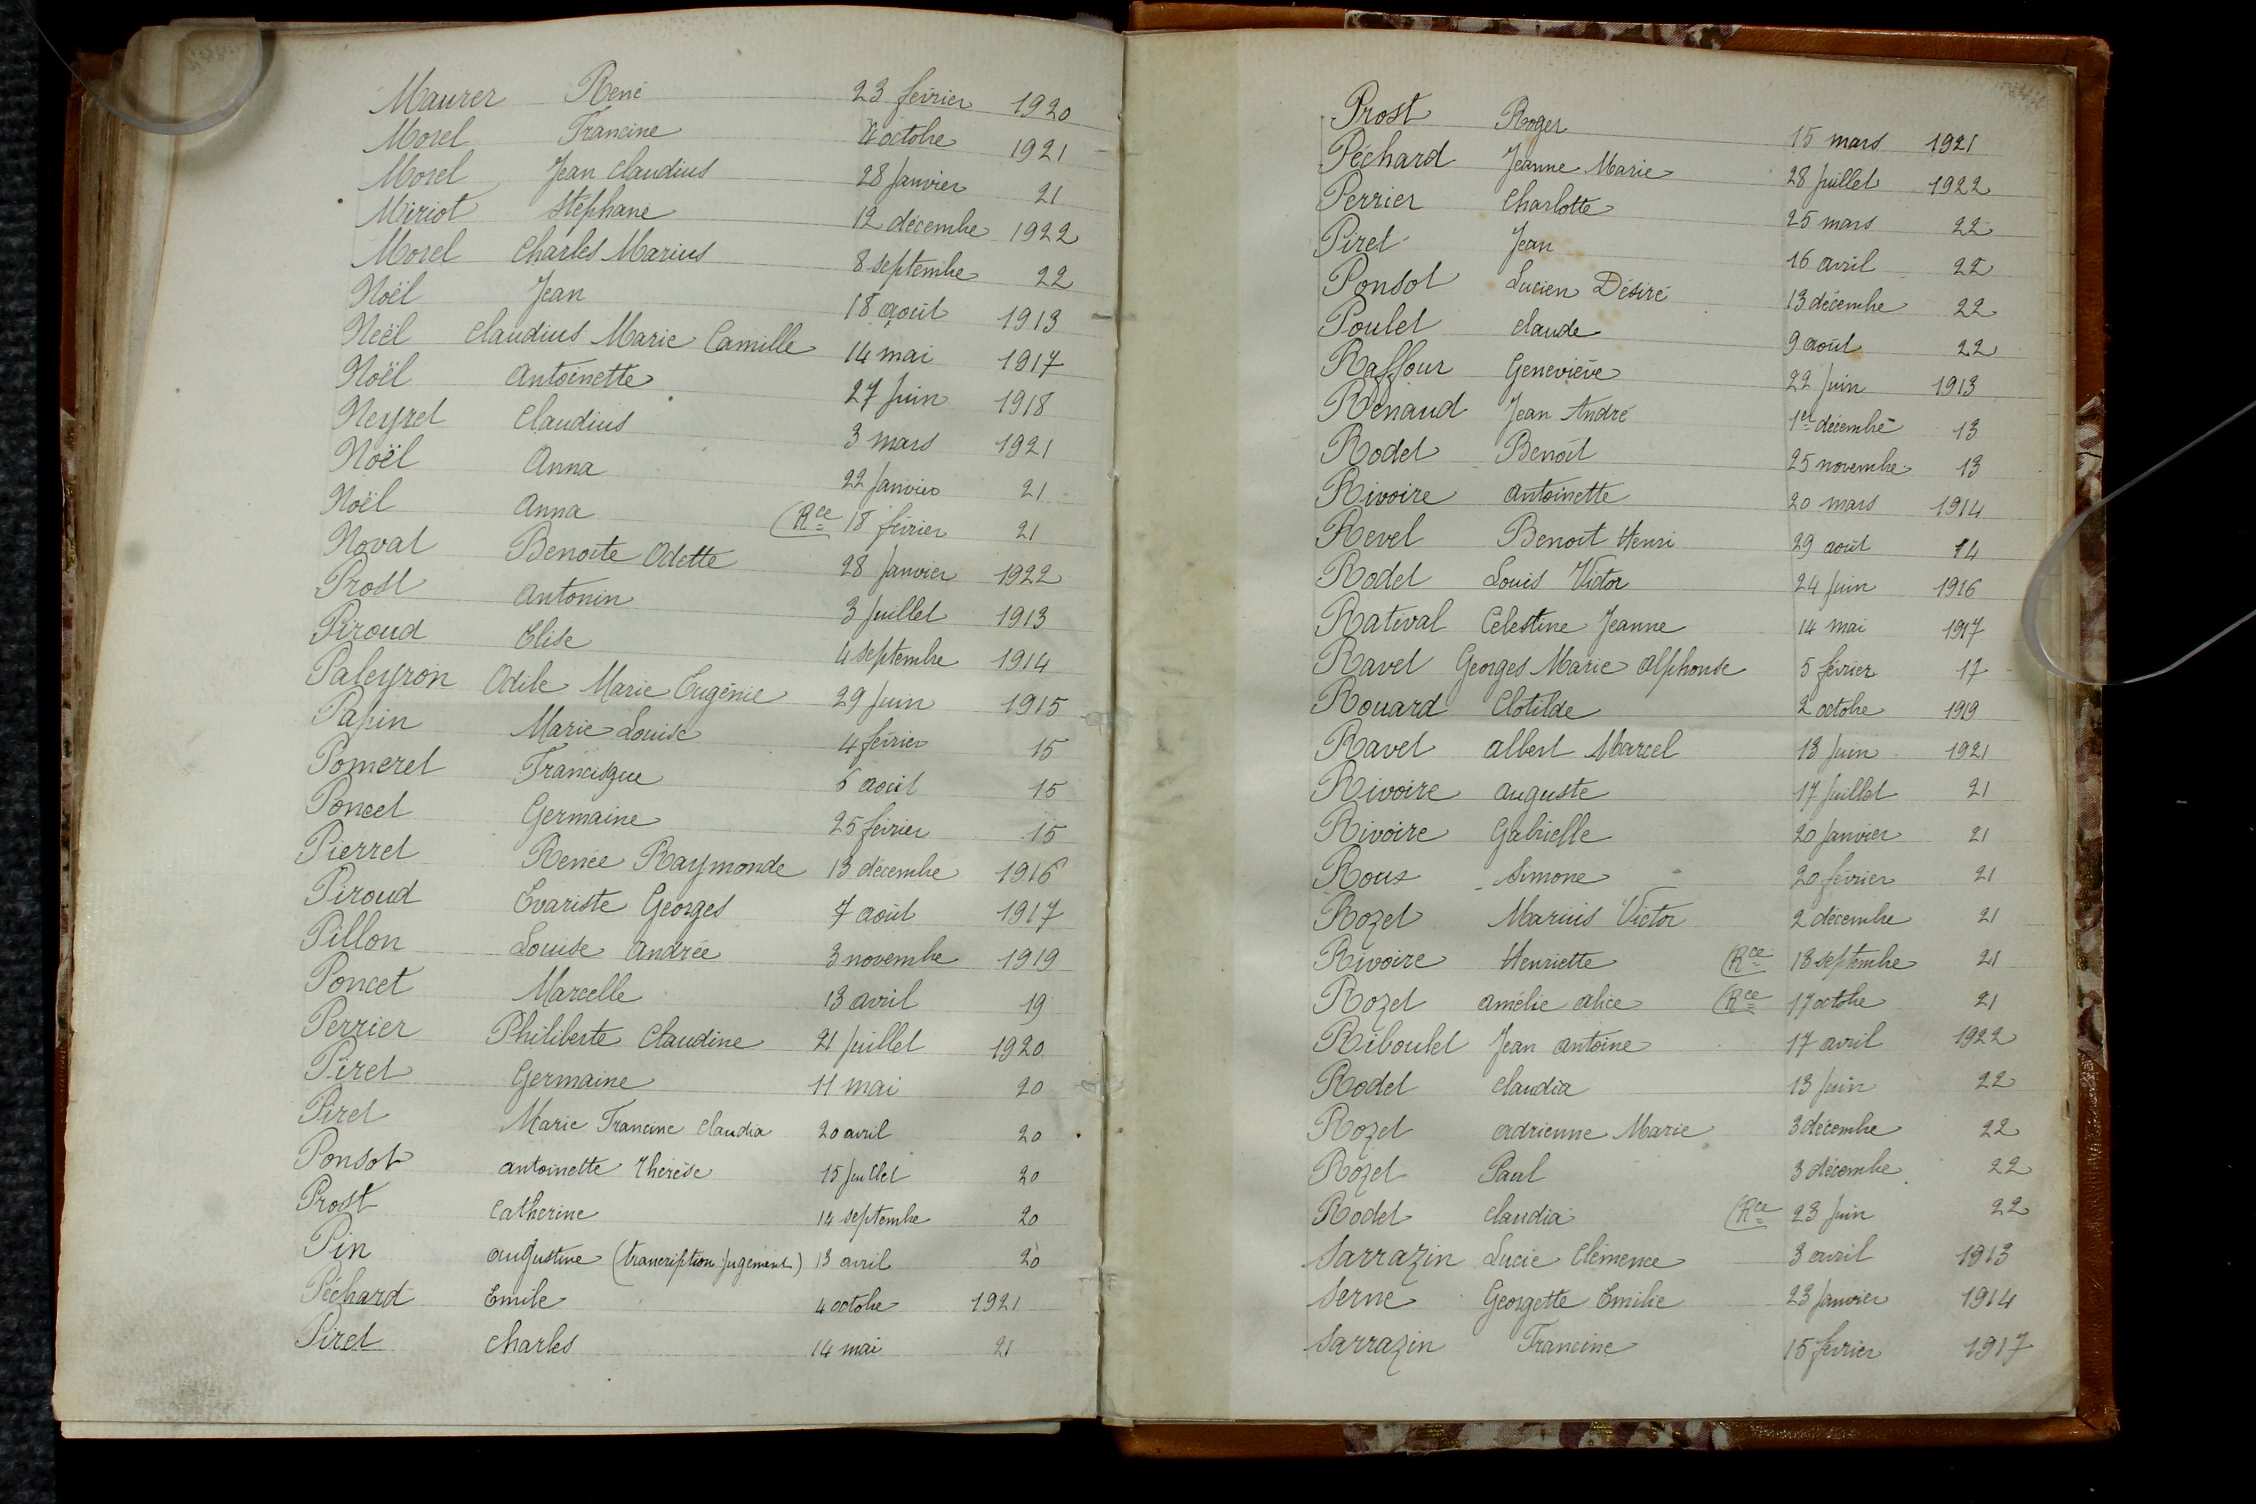 Maurer René 23 février 1920
Morel Francine 4 octobre 1921
Morel Jean Claudius 28 Janvier 21
Miriot Stéphane 12 décembre 1922
Morel Charles Marius 8 septembre 22
Noël Jean 18 août 1913
Neël Claudius Marie Camille 14 mai 1917
Noël Antoinette 27 Juin 1918
Neyret Claudius 3 mars 1921
Noël Anna 22 Janvier 21
Noël Anna (Rce 18 février 21
Noval Benoite Odette 28 Janvier 1922
Prost Antonin 3 Juillet 1913
Piroud Elise 4 septembre 1914
Paleyron Odile Marie Eugénie 29 Juin 1915
Papin Marie Louise 4 février 15
Pomeret Francisque 6 août 15
Poncet Germaine 25 février 15
Pierret Renée Raymonde 13 décembre 1916
Piroud Evariste Georges 7 août 1917
Pillon Louise Andrée 3 novembre 1919
Poncet Marcelle 13 avril 19
Perrier Philiberte Claudine 21 Juillet 1920
Piret Germaine 11 mai 20
Piret Marie Francine Claudia 20 avril 20
Ponsot Antoinette Thérèse 15 Juillet 20
Prost Catherine 14 septembre 20
Pin Augustine (trancription Jugement) 13 avril 20
Péchard Emile 4 octobre 1921
Piret Charles 14 mai 21
Prost Roger 15 mars 1921
Péchard Jeanne Marie 28 Juillet 1922
Perrier Charlotte 25 mars 22
Piret Jean 16 avril 22
Ponsot Lucien Désiré 13 décembre 22
Poulet Claude 9 août 22
Raffour Geneviève 22 Juin 1913
Renaud Jean André 1er décembre 13
Rodet Benoît 25 novembre 13
Rivoire Antoinette 20 mars 1914
Revel Benoît Henri 29 août 14
Rodet Louis Victor 24 Juin 1916
Ratival Célestine Jeanne 14 mai 1917
Ravet Georges Marie Alphonse 5 février 17
Rouard Clotilde 2 octobre 1919
Ravet Albert Marcel 13 Juin 1921
Rivoire Auguste 17 Juillet 21
Rivoire Gabrielle 20 Janvier 21
Roux Simone 20 février 21
Rozet Marius Victor 2 décembre 21
Rivoire Henriette (Rce 18 septembre 21
Rozet Amélie Alice (Rce 17 octobre 21
Riboulet Jean Antoine 17 avril 1922
Rodet Claudia 13 Juin 22
Rozet Adrienne Marie 3 décembre 22
Rozet Paul 3 décembre 22
Rodet Claudia (Rce 23 Juin 22
Sarrazin Lucie Clémence 3 avril 1913
Serne Georgette Emilie 23 Janvier 1914
Sarrazin Francine 15 février 1917